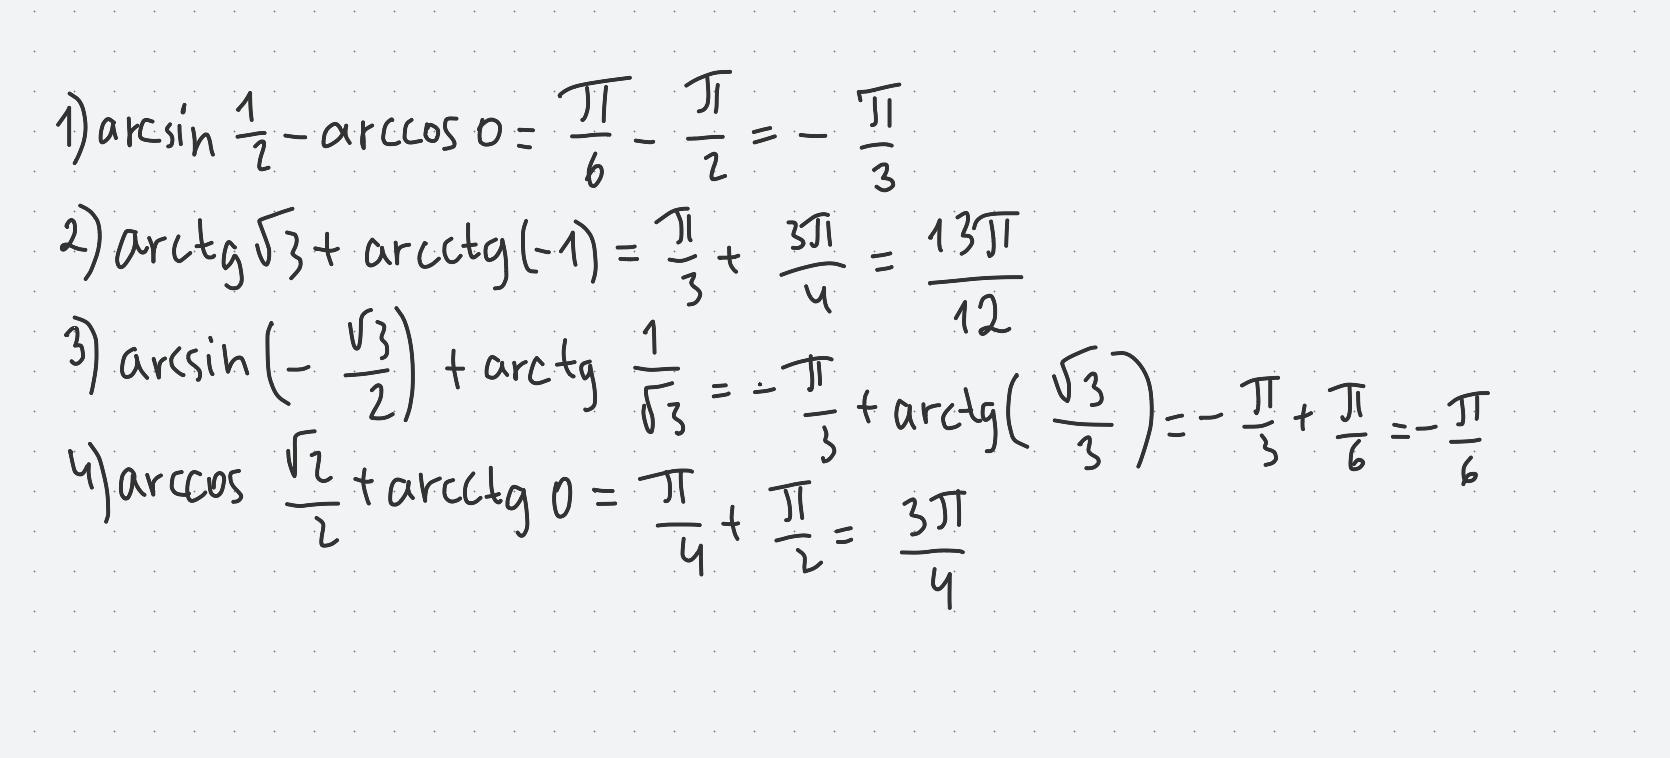 1) arcsin 1/2 - arccos 0 = π/6 - π/2 = - π/3
2) arctg √3 + arcctg(-1) = π/3 + 3π/4 = 13π/12
3) arcsin(- √3/2) + arctg 1/√3 = - π/3 + arctg(√3/3) = - π/3 + π/6 = - π/6
4) arccos √2/2 + arcctg 0 = π/4 + π/2 = 3π/4